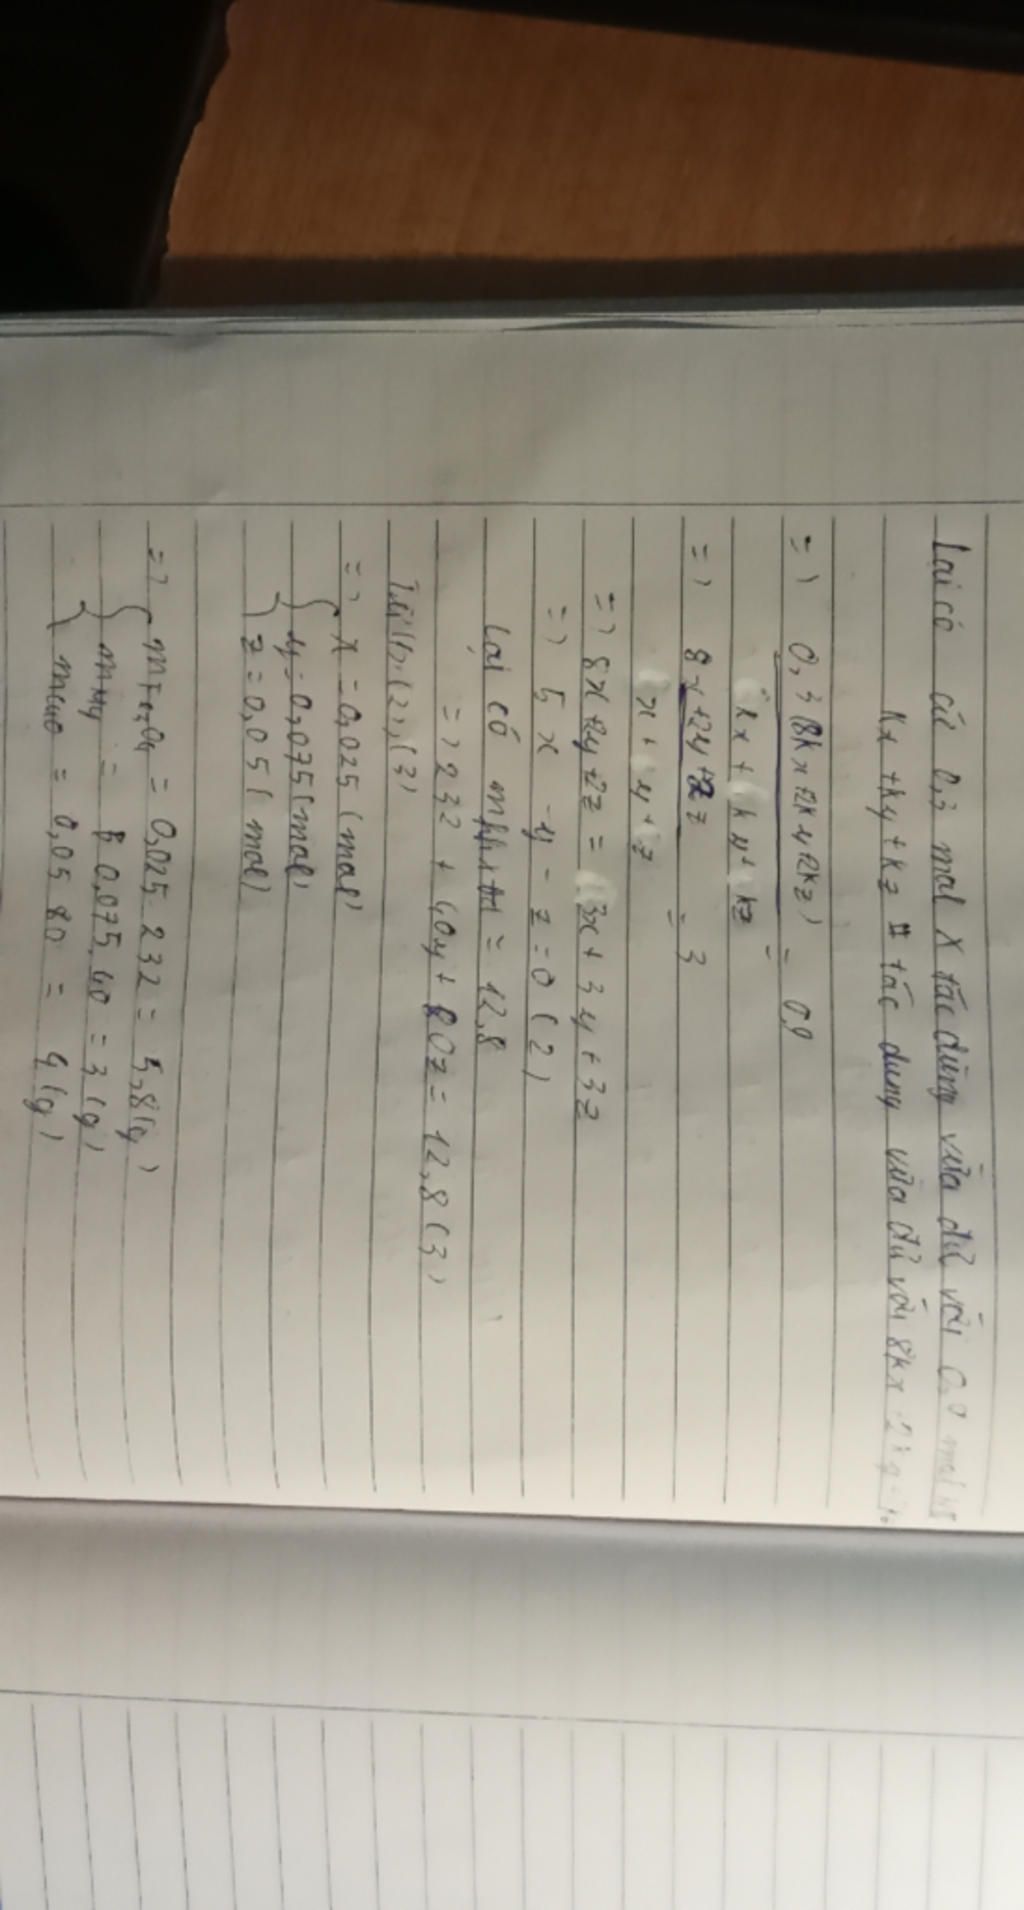 Lại có cứ 0,3 mol X tác dụng vừa đủ với 0,9 mol
kx + ky + kz tác dụng vừa đủ với 8kx 2ky
=> 0,3(8kx+2ky+2kz) = 0,9
kx + ky + kz
=> 8x+2y+2z = 3
x + y + z
=> 8x+2y+2z = 3x + 3y + 3z
=> 5x - y - z = 0 (2)
Lại có = 12,8
=> 232 + 40y + 80z = 12,8 (3)
Từ (1), (2), (3)
=> x = 0,025 (mol)
y = 0,075 (mol)
z = 0,05 (mol)
=> mFe3O4 = 0,025.232 = 5,8(g)
= 0,075.40 = 3(g)
mCuO = 0,05 80 = 4(g)